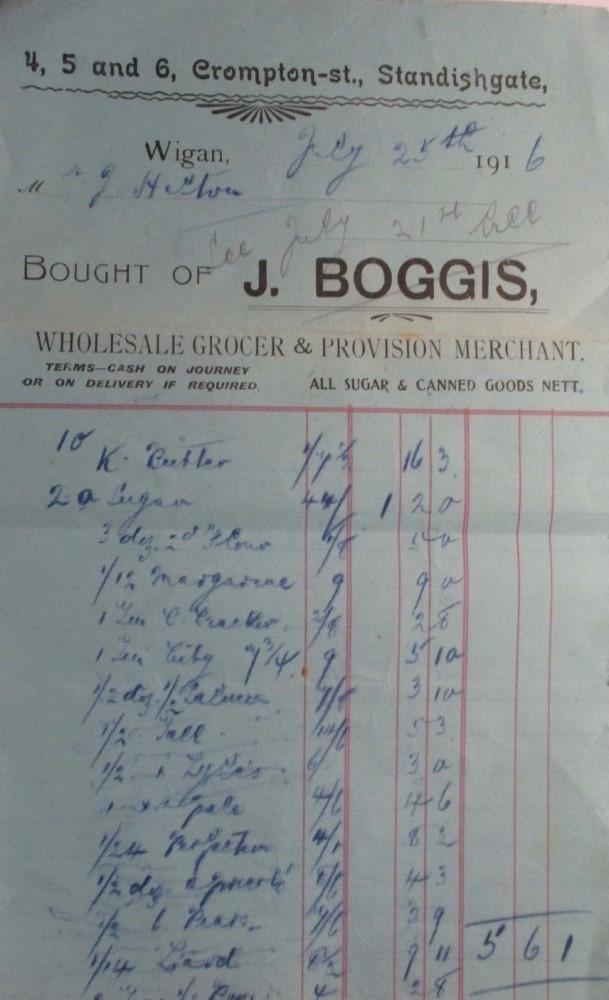 4, 5 and 6, Crompton-st., Standishgate,
Wigan, July 25th 1916
M r J
See July 21st
BOUGHT OF J. BOGGIS,
WHOLESALE GROCER & PROVISION MERCHANT.
TERMS—CASH ON JOURNEY
OR ON DELIVERY IF REQUIRED.
ALL SUGAR & CANNED GOODS NETT.
10 K. Butter 1/7½ 16 3
2 0 Sugar 44/ 1 2 0
3 doz. 2d Flour
1/12 Margarine 9 9 0
1 Tin C. Cracker 2/8 2 8
1 Tin City 7¾ 9 5 10
1/2 doz. ½ Salmon 7/8 3 10
1/2 Tall 10/6 5 3
1/2 6/ 3 0
1 4/6 4 6
1/24 4/1 8 2
1/2 doz 8/6 4 3
1/2 7/6 3 9
1/14 Lard 8½ 9 11 5 6 1
4 2 8